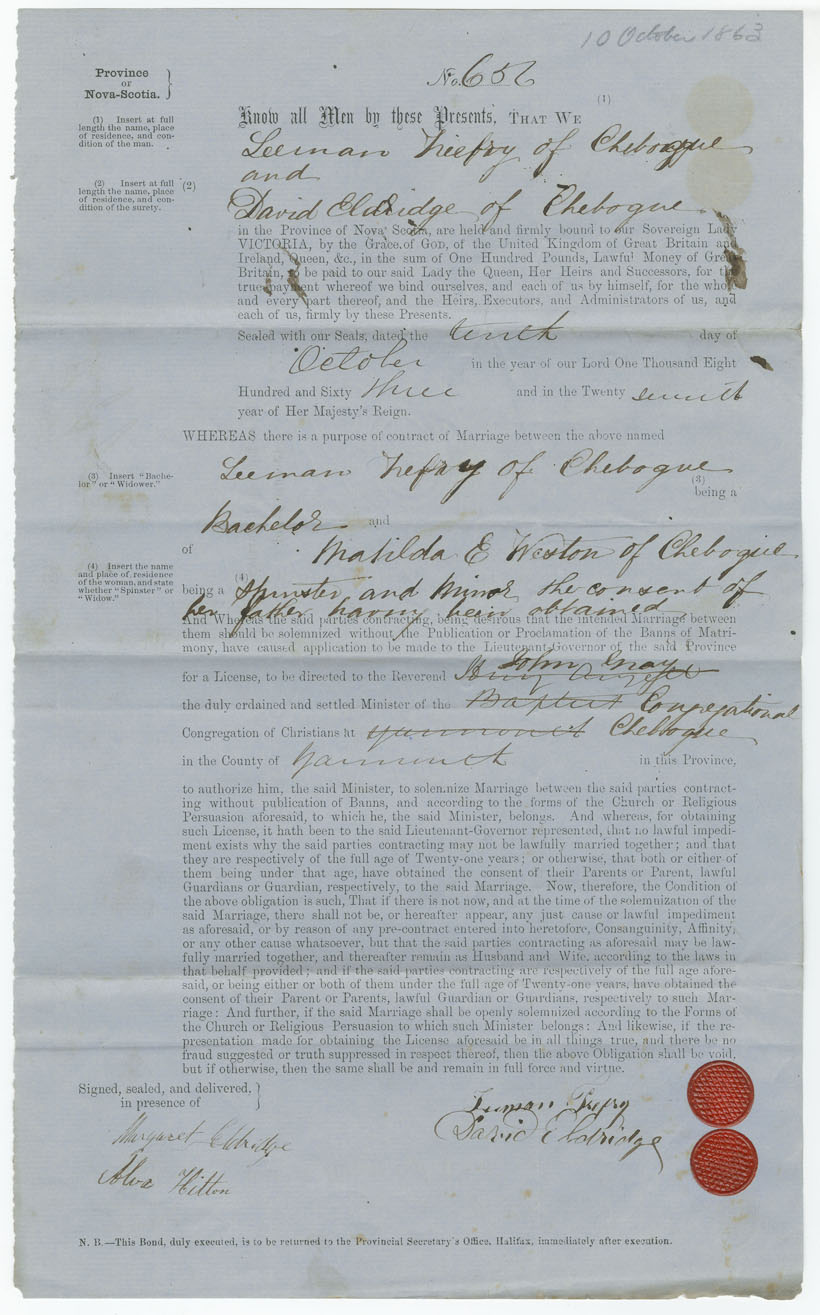 10 October 1863
No. 656
Province
OF
Nova-Scotia.
(1) Insert at full
length the name, place
of residence, and con-
dition of the man.
(1)
Know all Men by these Presents, THAT WE
Leeman Trefry of Chebogue
and
(2) Insert at full
length the name, place
of residence, and con-
dition of the surety.
(2)
David Eldridge of Chebogue
in the Province of Nova Scotia, are held and firmly bound to our Sovereign Lady
VICTORIA, by the Grace of GOD, of the United Kingdom of Great Britain and
Ireland, Queen, &c., in the sum of One Hundred Pounds, Lawful Money of Great
Britain, to be paid to our said Lady the Queen, Her Heirs and Successors, for the
true payment whereof we bind ourselves, and each of us by himself, for the whole
and every part thereof, and the Heirs, Executors, and Administrators of us, and
each of us, firmly by these Presents.
Sealed with our Seals, dated the tenth day of
October in the year of our Lord One Thousand Eight
Hundred and Sixty three and in the Twenty seventh
year of Her Majesty's Reign.
WHEREAS there is a purpose of contract of Marriage between the above named
(3) Insert "Bache-
lor" or "Widower."
Leeman Trefry of Chebogue
(3)
being a
Bachelor and
of Matilda E Weston of Chebogue
(4) Insert the name
and place of residence
of the woman, and state
whether "Spinster" or
"Widow."
(4)
being a Spinster and Minor the consent of
her father having been obtained
And Whereas the said parties contracting, being desirous that the intended Marriage between
them should be solemnized without the Publication or Proclamation of the Banns of Matri-
mony, have caused application to be made to the Lieutenant-Governor of the said Province
John Gray
for a License, to be directed to the Reverend
the duly ordained and settled Minister of the Baptist Congregational
Congregation of Christians at Yarmouth Chebogue
in the County of Yarmouth in this Province,
to authorize him, the said Minister, to solemnize Marriage between the said parties contract-
ing without publication of Banns, and according to the forms of the Church or Religious
Persuasion aforesaid, to which he, the said Minister, belongs. And whereas, for obtaining
such License, it hath been to the said Lieutenant-Governor represented, that no lawful impedi-
ment exists why the said parties contracting may not be lawfully married together; and that
they are respectively of the full age of Twenty-one years; or otherwise, that both or either of
them being under that age, have obtained the consent of their Parents or Parent, lawful
Guardians or Guardian, respectively, to the said Marriage. Now, therefore, the Condition of
the above obligation is such, That if there is not now, and at the time of the solemnization of the
said Marriage, there shall not be, or hereafter appear, any just cause or lawful impediment
as aforesaid, or by reason of any pre-contract entered into heretofore, Consanguinity, Affinity,
or any other cause whatsoever, but that the said parties contracting as aforesaid may be law-
fully married together, and thereafter remain as Husband and Wife, according to the laws in
that behalf provided; and if the said parties contracting are respectively of the full age afore-
said, or being either or both of them under the full age of Twenty-one years, have obtained the
consent of their Parent or Parents, lawful Guardian or Guardians, respectively to such Mar-
riage: And further, if the said Marriage shall be openly solemnized according to the Forms of
the Church or Religious Persuasion to which such Minister belongs: And likewise, if the re-
presentation made for obtaining the License aforesaid be in all things true, and there be no
fraud suggested or truth suppressed in respect thereof, then the above Obligation shall be void,
but if otherwise, then the same shall be and remain in full force and virtue.
Signed, sealed, and delivered,
in presence of
Leeman Trefry
David Eldridge
Margaret Eldridge
Alva Hilton
N. B.—This Bond, duly executed, is to be returned to the Provincial Secretary's Office, Halifax, immediately after execution.